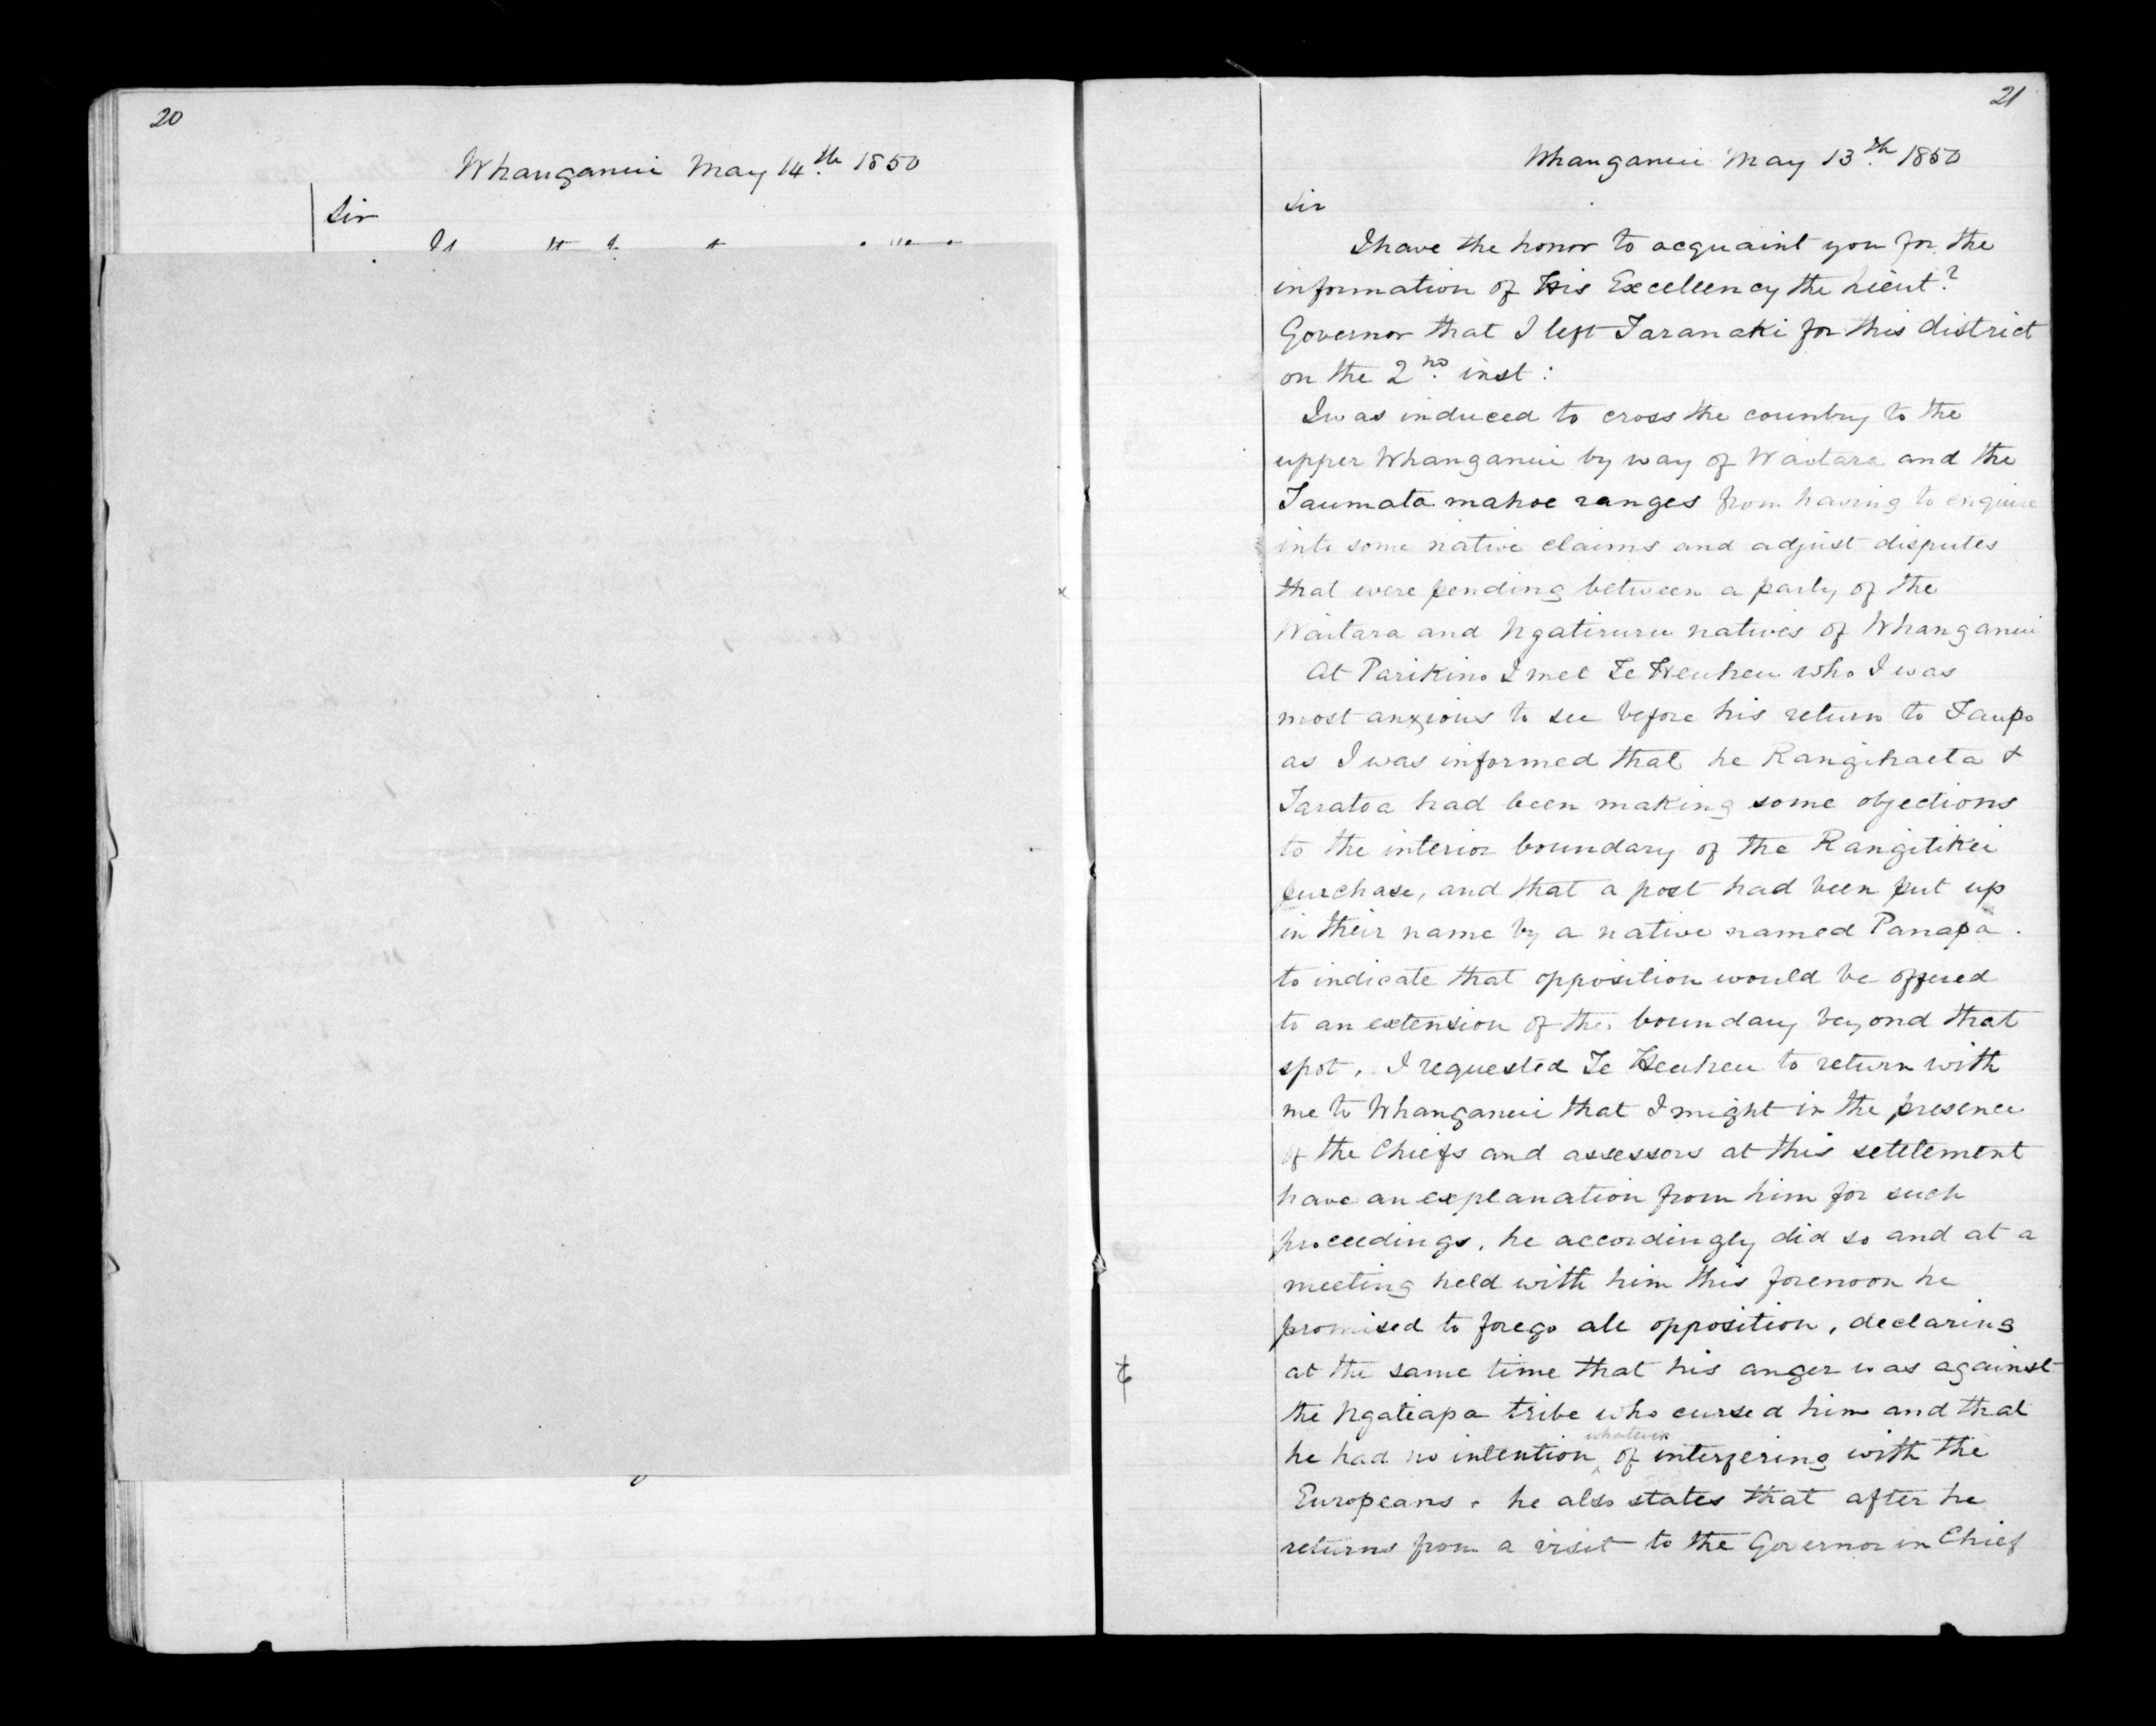 20
Whanganui May 14th 1850
Sir
21
Whanganui May 13th 1850
Sir
I have the honor to acquaint you for the
information of His Excellency the Lieut.
Governor that I left Taranaki for this district
on the 2nd inst:
I was induced to cross the country to the
upper Whanganui by way of Waitara and the
Taumata mahoe ranges from having to enquire
into some native claims and adjust disputes
that were pending between a party of the
Waitara and Ngatiruru natives of Whanganui
At Parikino I met Te Heuheu who I was
most anxious to see before his return to Taupo
as I was informed that he Rangihaeta &
Taratoa had been making some objections
to the interior boundary of the Rangitikei
purchase, and that a post had been put up
in their name by a native named Panapa.
to indicate that opposition would be offered
to an extension of the boundary beyond that
spot. I requested Te Heuheu to return with
me to Whanganui that I might in the presence
of the Chiefs and assessors at this settlement
have an explanation from him for such
proceedings. he accordingly did so and at a
meeting held with him this forenoon he
promised to forego all opposition, declaring
at the same time that his anger was against
the Ngatiapa tribe who cursed him and that
he had no intention whatever of interfering with the
Europeans. he also states that after he
returns from a visit to the Governor in Chief